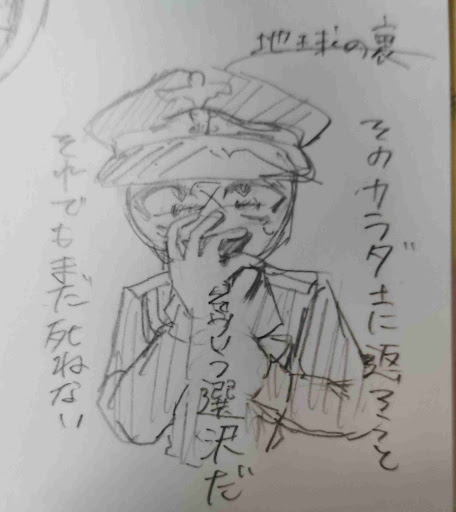 地球の裏
そのカラダ土に返そうと
選択だ
それでもまだ死ねない